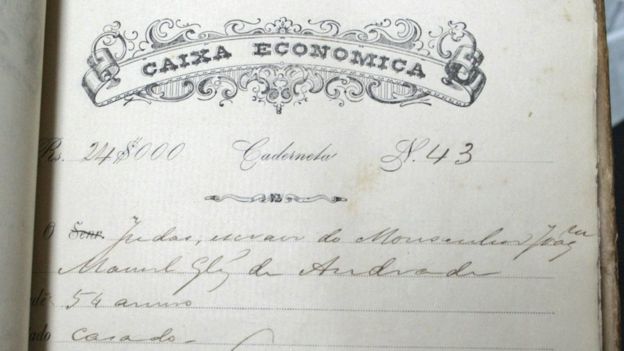 CAIXA ECONOMICA
Rs. 24$000 Caderneta N. 43
O Snr. Judas, escravo do Monsenhor Joaqm
Manuel Glz de Andrade
54 annos
casado